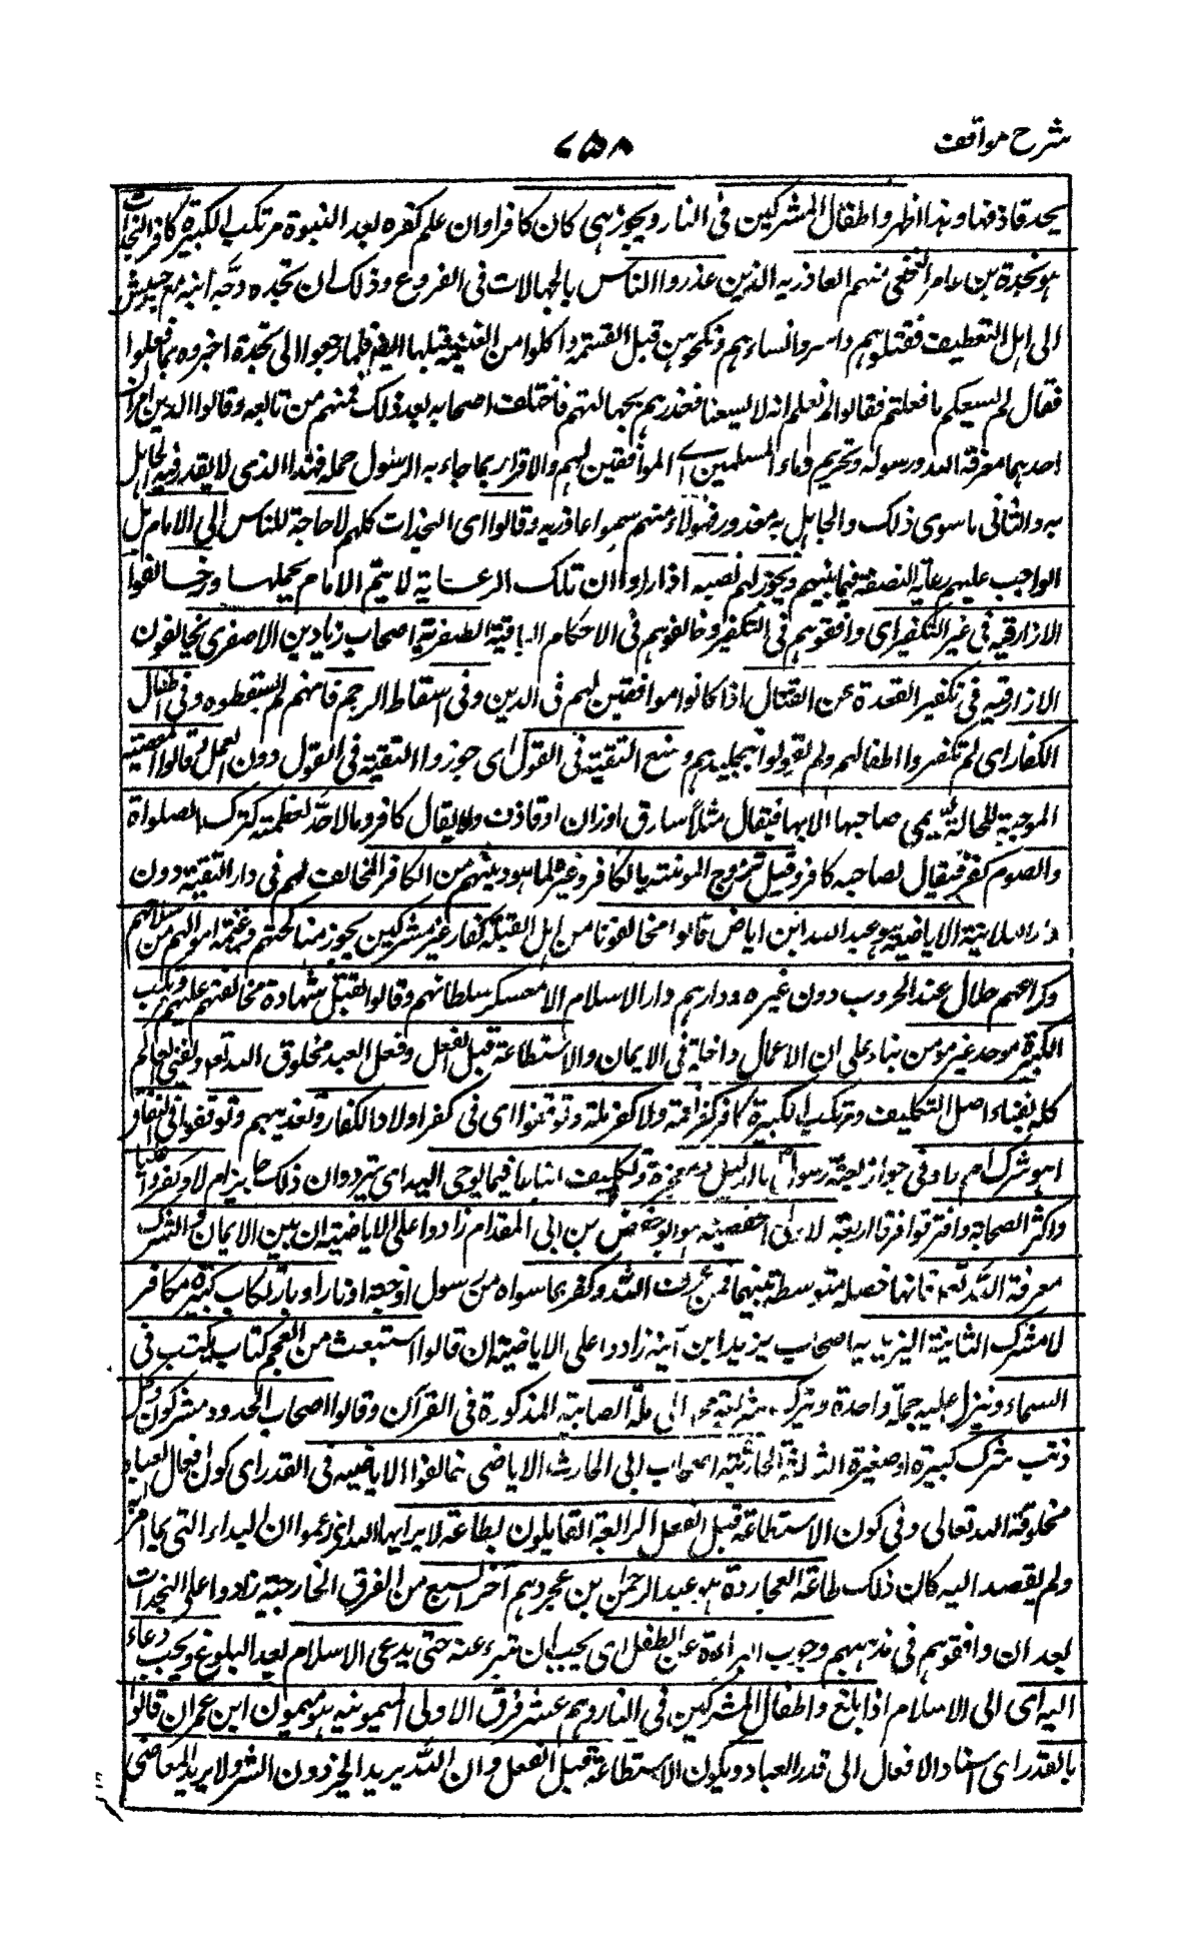 شرح مواقف
٧٥٨
يحد قاذفها وهذا اظهر واطفال المشركين فى النار ويجوز نبى كان كافرا وان علم كفره بعد النبوة مرتكب الكبيرة كافر النجدات
هو نجدة بن عامر النخعى منهم العاذريه الذين عذروا الناس بالجهالات فى الفروع وذلك ان نجده وجّه ابنه مع جيش
الى اهل القطيف فقتلوهم واسروا نساءهم ونكحوهن قبل القسمة واكلوا من الغنيمة قبلها ايضا فلما رجعوا الى نجدة اخبروه بما فعلوا
فقال لم يسعكم ما فعلتم فقالوا لم نعلم انه لا يسعنا فعذرهم بجهالتهم فاختلف اصحابه بعد ذلك فمنهم من تابعه وقالوا الدين امران
احدهما معرفة الله ورسوله وتحريم دماء المسلمين اى الموافقين لهم والاقرار بما جاء به الرسول جملة فهذا الذى لا يعذر فيه الجاهل
به والثانى ما سوى ذلك والجاهل به معذور فهولاء منهم سموا عاذريه وقالوا اى النجدات كلهم لا حاجة للناس الى الامام بل
الواجب عليهم رعاية النصفة فيما بينهم ويجوز لهم نصبه اذا راوا ان تلك الرعاية لا يتم الا بامام يحملها وخالفوا
الازارقيه فى غير التكفير اى وافقوهم فى التكفير وخالفوهم فى الاحكام الباقية الصفرية اصحاب زياد بن الاصفر يخالفون
الازارقيه فى تكفير القعدة عن القتال اذا كانوا موافقين لهم فى الدين وفى اسقاط الرجم فانهم لم يسقطوه وفى اطفال
الكفار اى لم تكفروا اطفالهم ولم يقولوا بتخليدهم ومنع التقية فى القول اى جوزوا التقية فى القول دون العمل وقالوا المعصية
الموجبة للحد لا يسمى صاحبها الا بها فيقال مثلا سارق او زان او قاذف ولا يقال كافر وما لا حدّ لعظمته كترك الصلواة
والصوم كفر فيقال لصاحبه كافر وقيل تزوج المومنة بالكافر وغير ما هو دينهم من الكافر المخالف لهم فى دار التقية دون
دار العلانية الاباضية هو عبد الله ابن اباض قالوا مخالفونا من اهل القبلة كفار غير مشركين يجوز مناكحتهم وغنيمة اموالهم من سلاحهم
وكراعهم حلال عند الحروب دون غيره ودارهم دار الاسلام الا معسكر سلطانهم وقالوا تقبل شهادة مخالفهم عليهم ومرتكب
الكبيرة موحد غير مومن بناء على ان الاعمال داخلة فى الايمان والاستطاعة قبل الفعل وفعل العبد مخلوق الله تعه ويفنى العالم
كله بفناء اهل التكليف ومرتكب الكبيرة كافر كفر نعمة ولا كفر ملة وتوقفوا اى فى كفر اولاد الكفار وتعذيبهم وتوقفوا فى النفاق
اهو شرك ام لا وفى جواز بعثة رسول بلا دليل ومعجزة وتكليف اتباعه فيما يوحى اليه اى ترددوا ان ذلك جايز ام لا وكفروا عليا
واكثر الصحابة وافترقوا فرقا اربعة الاولى الحفصيه هو ابو حفص بن ابى المقدام زادوا على الاباضية ان بين الايمان والشرك
معرفة الله تعه فانها خصلة متوسطة بينهما فمن عرف الله وكفر بما سواه من رسول او جنة او نار او بارتكاب كبيرة كافر
لا مشرك الثانية اليزيديه اصحاب يزيد ابن انيسه زادوا على الاباضية ان قالوا ستبعث من العجم كتاب يكتب فى
السماء وينزل عليه جملة واحدة ويترك شريعة محمد الى ملة الصابئة المذكورة فى القرآن وقالوا اصحاب الحدود مشركون وكل
ذنب شرك كبيرة او صغيرة الثالثة الحارثية اصحاب ابى الحارث الاباضى خالفوا الاباضيه فى القدر اى كون افعال العباد
مخلوقة الله تعالى وفى كون الاستطاعة قبل الفعل الرابعة القايلون بطاعة لا يراد بها الله اى زعموا ان العبد اذا اتى بما امر به
ولم يقصد اليه كان ذلك طاعة العجاردة هو عبد الرحمن بن عجرد هم آخر السبع من الفرق الخارجية زادوا على النجدات
بعد ان وافقوهم فى مذهبهم وجوب البراءة عن الطفل اى يجب ان تبرء عنه حتى يدعى الاسلام بعد البلوغ ويجب دعاء
اليه اى الى الاسلام اذا بلغ واطفال المشركين فى النار وهم عشر فرق الاولى الميمونيه هو ميمون ابن عمران قالوا
بالقدر اى اسناد الافعال الى قدر العباد ويكون الاستطاعة قبل الفعل وان الله يريد الخير دون الشر ولا يريد المعاصى